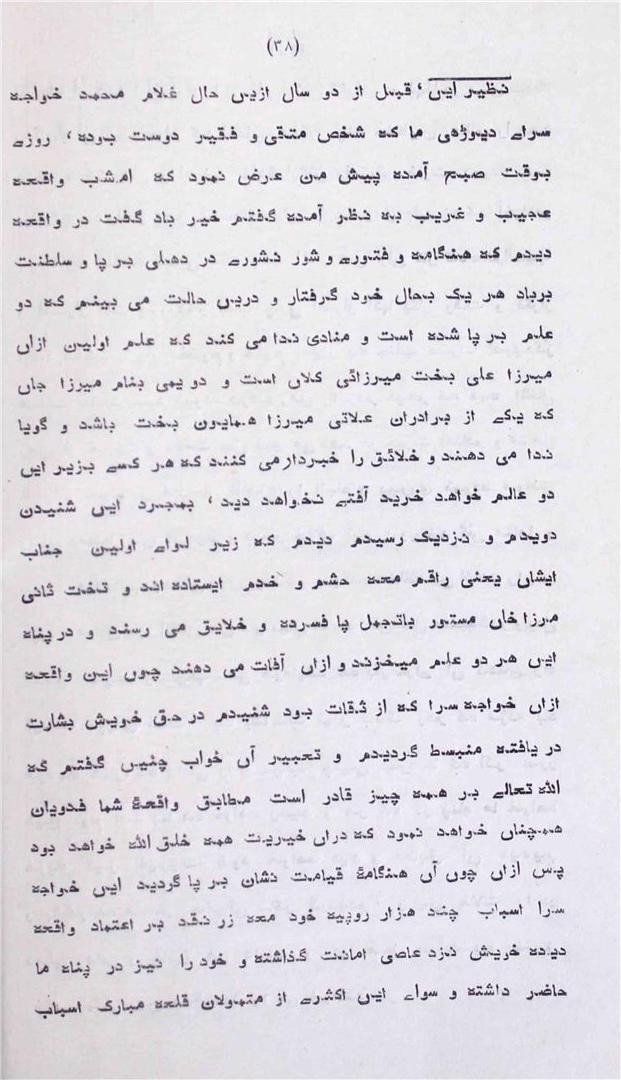 (۳۸)
نظیر ایں، قبل از دو سال ازیں حال غلام محمد خواجہ
سراے دیوڑھی ما کہ شخص متقی و فقیر دوست بودہ، روزے
بوقت صبح آمدہ پیش من عرض نمود کہ امشب واقعۂ
عجیب و غریب بہ نظر آمدہ گفتم خیر باد گفت در واقعہ
دیدم کہ ہنگامہ و فتورے و شور نشورے در دہلی برپا و سلطنت
برباد ہر یک بحال خرد گرفتار و دریں حالت می بینم کہ دو
علم برپا شدہ است و منادی ندا می کند کہ علم اولین ازاں
میرزا علی بخت میرزائی کلاں است و دویمی بنام میرزا جاں
کہ یکے از برادران علاتی میرزا ہمایون بخت باشد و گویا
ندا می دہند و خلائق را خبردار می کنند کہ ہر کسے بزیر ایں
دو عالم خواہد خرید آفتے نخواہد دید، بمجرد ایں شنیدن
دویدم و نزدیک رسیدم دیدم کہ زیر لواے اولین جناب
ایشاں یعنی راقم معہ حشم و خدم ایستادہ اند و تخت ثانی
مرزا خاں مستور باتجمل پا فسردہ و خلایق می رسند و در پناہ
ایں ہر دو علم میخزند و ازاں آفات می دہند چوں این واقعہ
ازاں خواجہ سرا کہ از ثقات بود شنیدم در حق خویش بشارت
دریافتہ منبسط گردیدم و تعبیر آں خواب چنیں گفتم کہ
اللہ تعالے بر ہمہ چیز قادر است مطابق واقعۂ شما فدویان
ہمچناں خواہد نمود کہ دراں خیریت ہمہ خلق اللہ خواہد بود
پس ازاں چوں آں ہنگامۂ قیامت نشان برپا گردید ایں خواجہ
سرا اسباب چند ہزار روپیہ خود معہ زر نقد بر اعتماد واقعہ
دیدہ خریش نزد عاصی امانت گذاشتہ و خود را نیز در پناہ ما
حاضر داشتہ و سواے ایں اکثرے از متمولان قلعہ مبارک اسباب